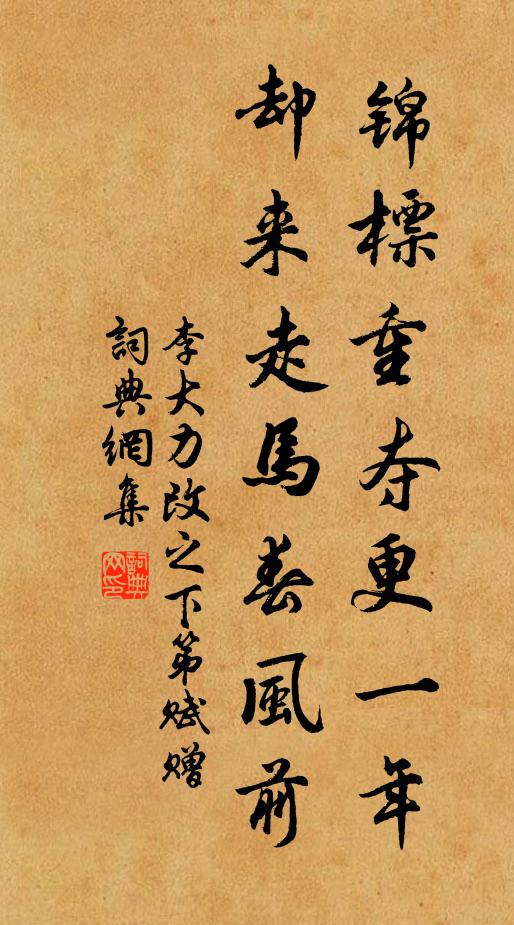 锦標重夺更一年
却来走馬春風前
李大力改之下第赋赠
詞典網集
詞典网印